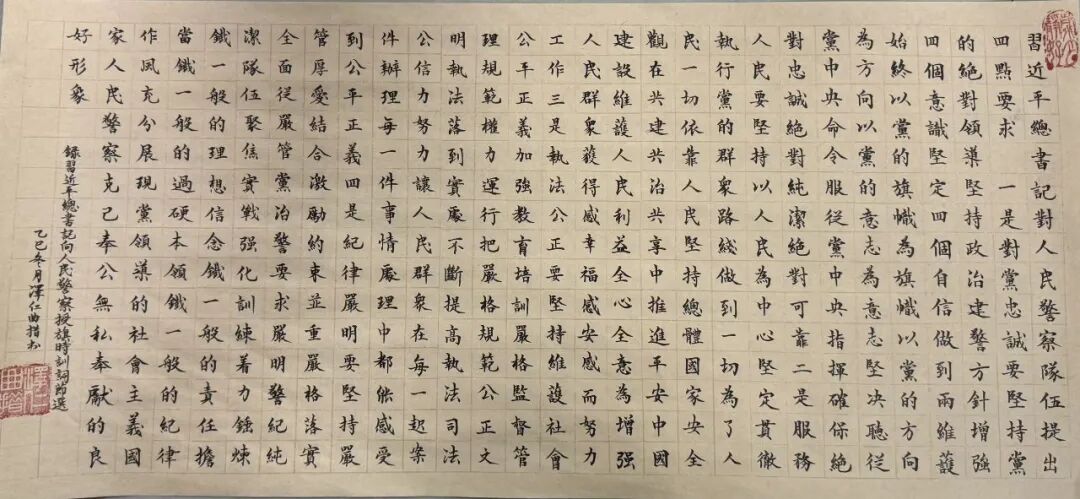 習近平總書記對人民警察隊伍提出
四點要求 一是對黨忠誠要堅持黨
的絕對領導堅持政治建警方針增強
四個意識堅定四個自信做到兩維護
始終以黨的旗幟為旗幟以黨的方向
為方向以黨的意志為意志堅决聽從
黨中央命令服從黨中央指揮確保絕
對忠誠絕對純潔絕對可靠二是服務
人民要堅持以人民為中心堅定貫徹
執行黨的群衆路綫做到一切為了人
民一切依靠人民堅持總體國家安全
觀在共建共治共享中推進平安中國
建設維護人民利益全心全意為增強
人民群衆獲得感幸福感安感而努力
工作三是執法公正要堅持維護社會
公平正義加強教育培訓嚴格監督管
理規範權力運行把嚴格規範公正文
明執法落到實處不斷提高執法司法
公信力努力讓人民群衆在每一起案
件辦理每一件事情處理中都能感受
到公平正義四是紀律嚴明要堅持嚴
管厚愛結合激勵約束並重嚴格落實
全面從嚴管黨治警要求嚴明警紀純
潔隊伍聚焦實戰強化訓練着力錘煉
鐵一般的理想信念鐵一般的責任擔
當鐵一般的過硬本領鐵一般的紀律
作風充分展現黨領導的社會主義國
家人民警察克己奉公無私奉獻的良
好形象
錄習近平總書記向人民警察授旗時訓詞節選
乙巳年月澤仁曲措书